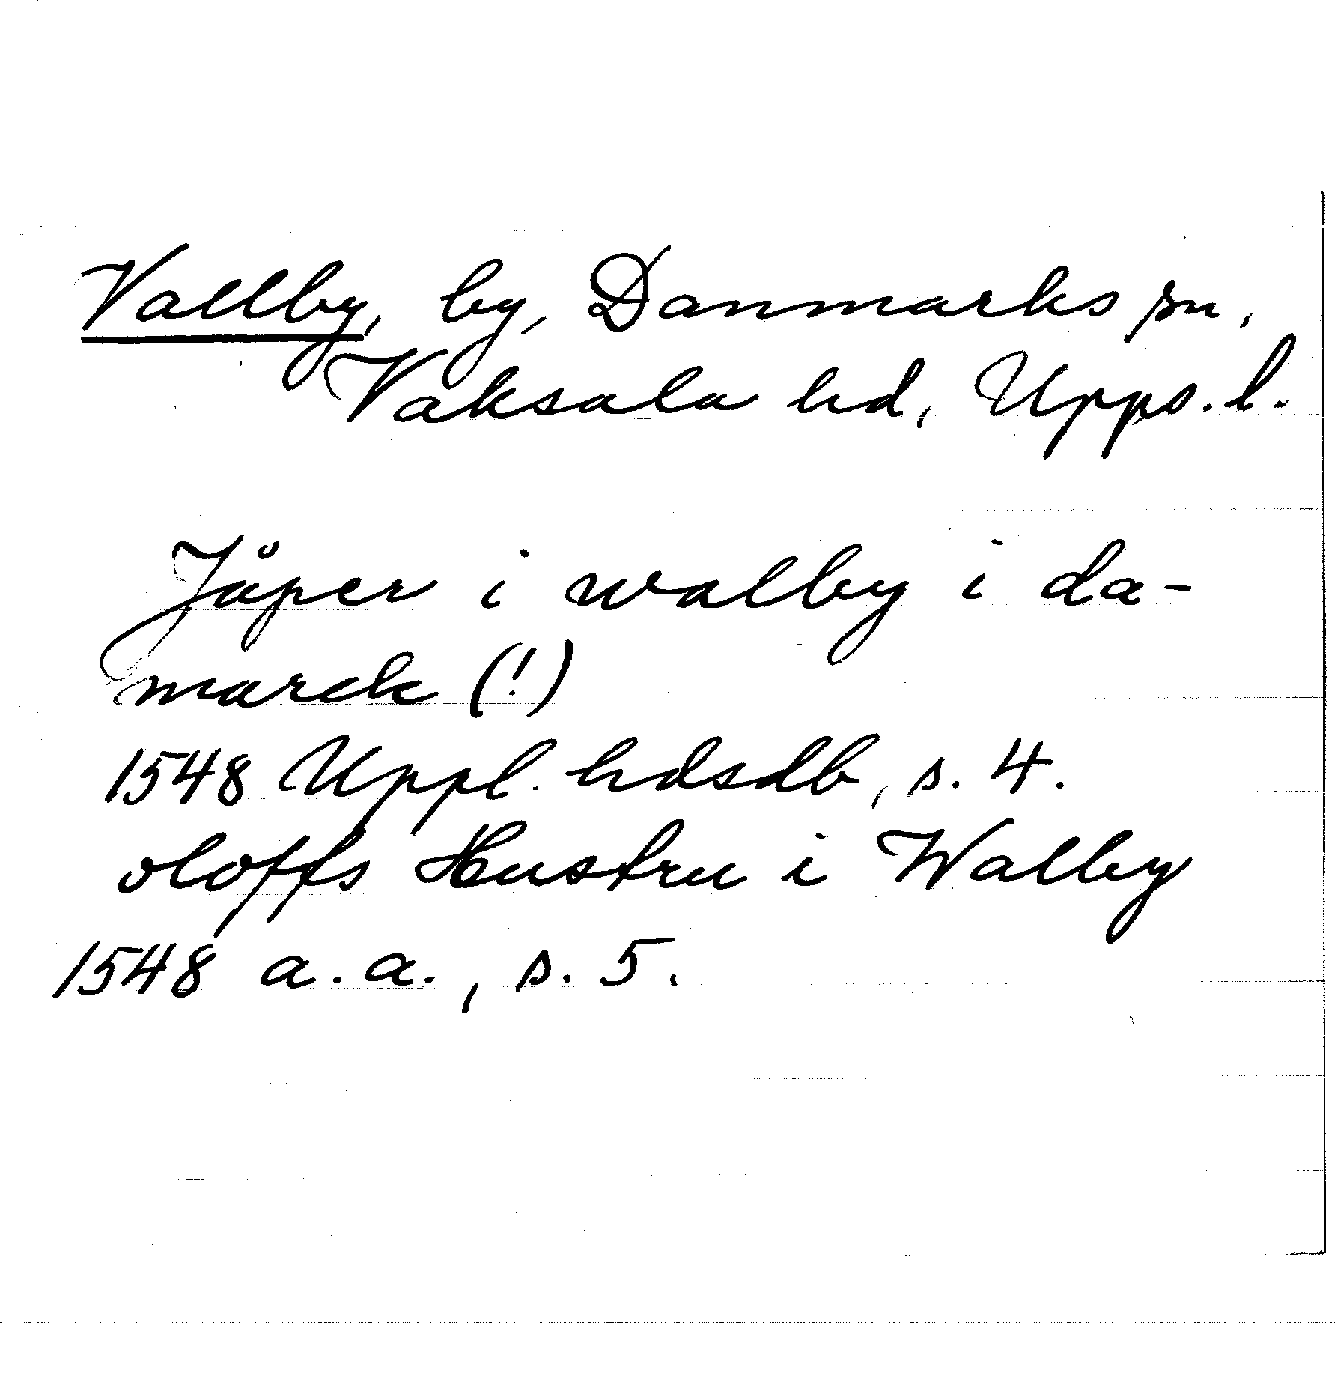 Vallby, by, Danmarks sn,
Vaksala hd, Upps. l.
Jåper i walby i da-
marck (!)
1548 Uppl. hdsdb, s. 4.
oloffs Hustru i Walby
1548 a.a., s. 5.